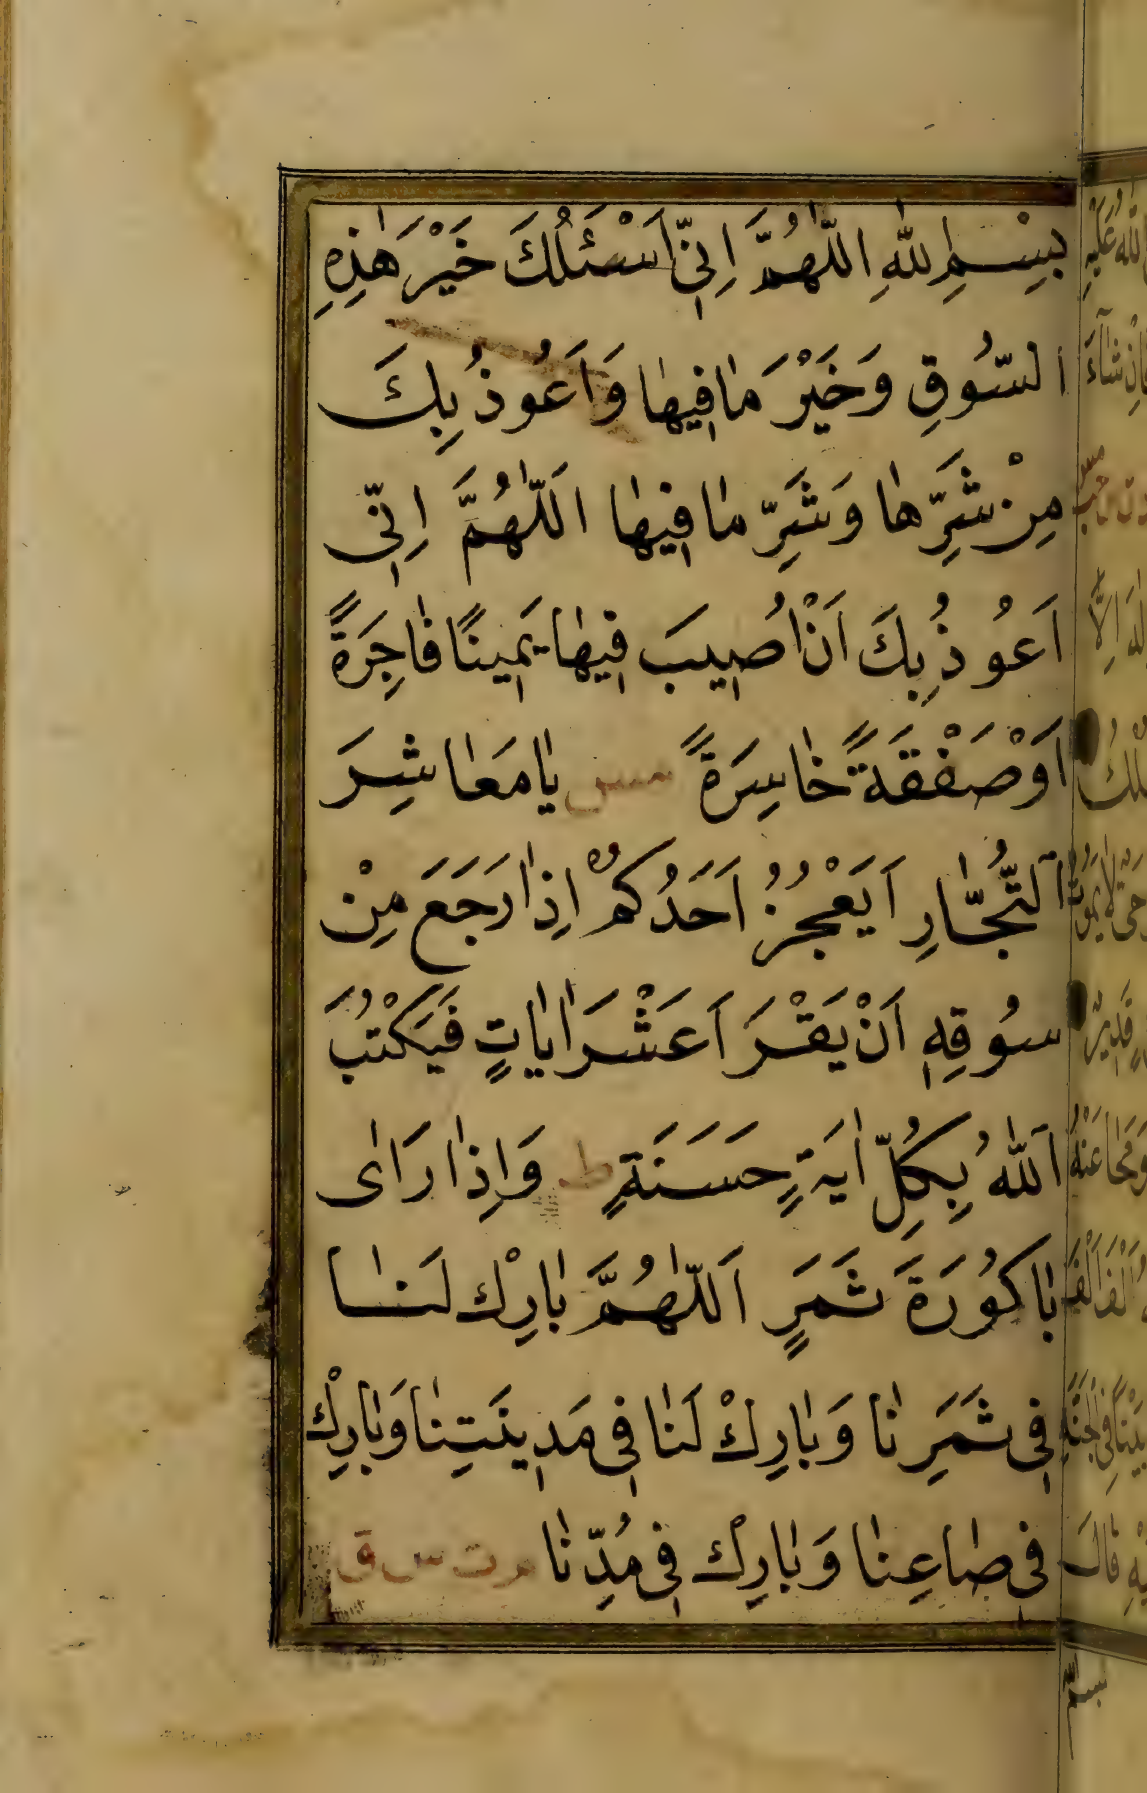 بِسْمِ اللهِ اللّٰهُمَّ اِنِّى اَسْئَلُكَ خَيْرَ هٰذِهِ
السُّوقِ وَخَيْرَ مٰا فِيهٰا وَاَعُوذُ بِكَ
مِنْ شَرِّهٰا وَشَرِّ مٰا فِيهٰا اَللّٰهُمَّ اِنِّى
اَعُوذُ بِكَ اَنْ اُصِيبَ فِيهٰا يَمِينًا فٰاجِرَةً
اَوْ صَفْقَةً خٰاسِرَةً مس يٰا مَعٰاشِرَ
التُّجّٰارِ اَيَعْجُزُ اَحَدُكُمْ اِذٰا رَجَعَ مِنْ
سُوقِهِ اَنْ يَقْرَاَ عَشْرَ اٰيٰاتٍ فَيَكْتُبَ
اَللّٰهُ بِكُلِّ اٰيَةٍ حَسَنَةٍ ط وَاِذٰا رَاٰى
بٰاكُورَةَ ثَمَرٍ اَللّٰهُمَّ بٰارِكْ لَنٰا
فِى ثَمَرِنٰا وَبٰارِكْ لَنٰا فِى مَدِينَتِنٰا وَبٰارِكْ
فِى صٰاعِنٰا وَبٰارِكْ فِى مُدِّنٰا م ت س ق